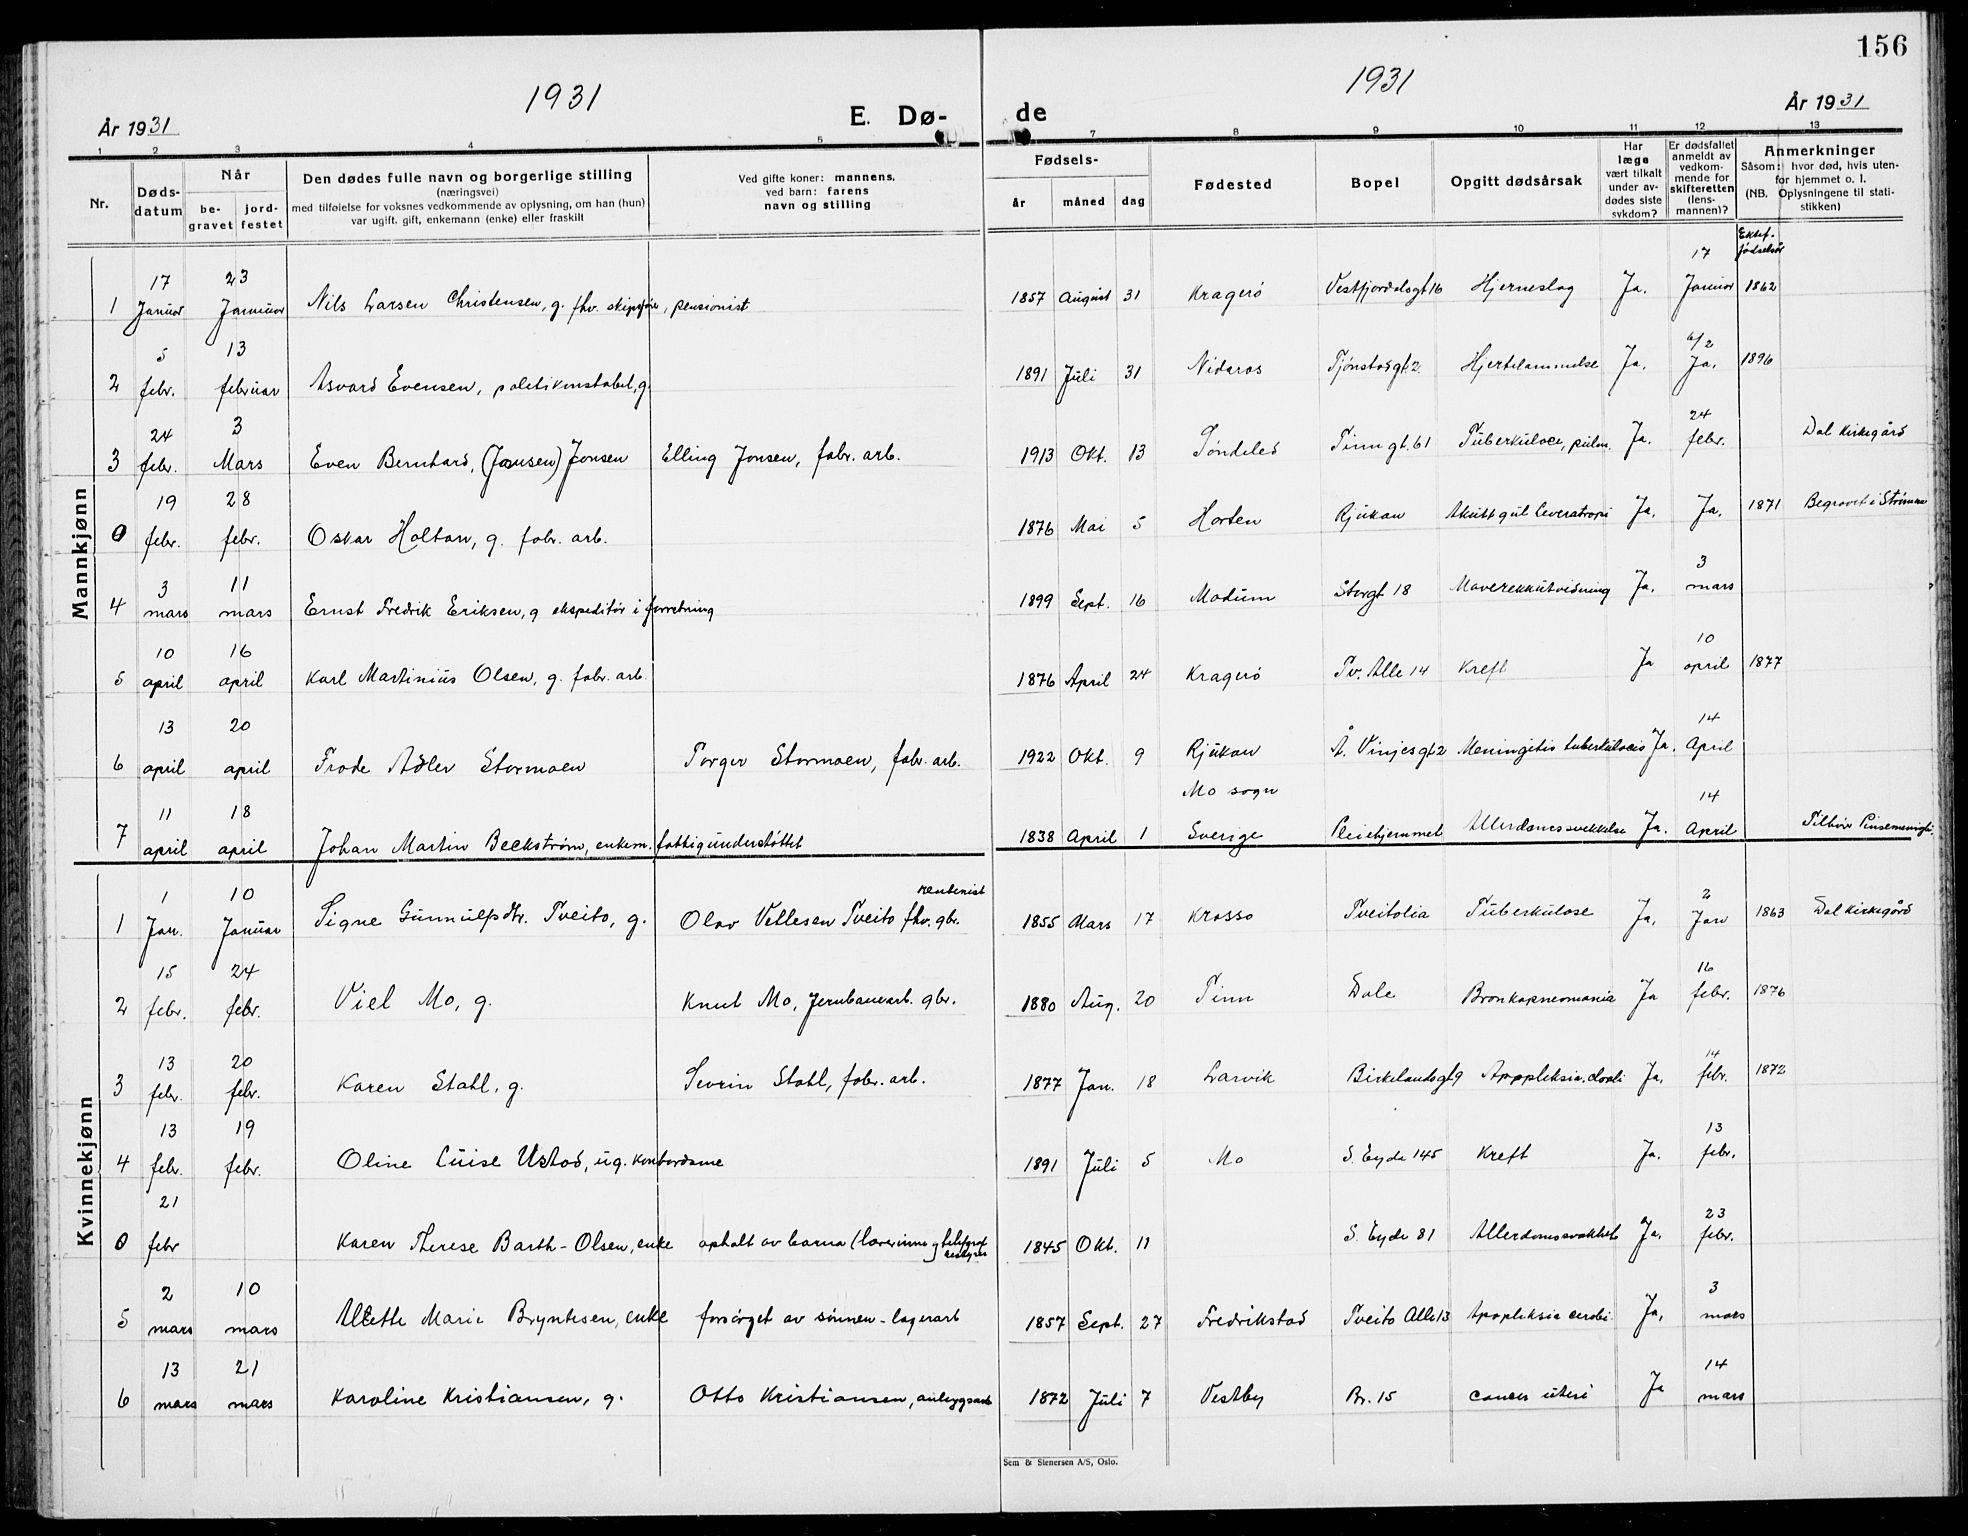 156
1931
1931
År 1931
E. Dø-
de
År 1931
1 2 3 4 5 7 8 9 10 11 12 13
Nr.
Døds-
datum
Når
be-
gravet
jord-
festet
Den dødes fulle navn og borgerlige stilling
(næringsvei)
med tilføielse for voksnes vedkommende av oplysning, om han (hun)
var ugift. gift, enkemann (enke) eller fraskilt
Ved gifte koner: mannens,
ved barn: farens
navn og stilling
Fødsels-
år måned dag
Fødested
Bopel
Opgitt dødsårsak
Har
læge
vært tilkalt
under av-
dødes siste
sykdom?
Er dødsfallet
anmeldt av
vedkom-
mende for
skifteretten
(lens-
mannen)?
Anmerkninger
Såsom: hvor død, hvis uten-
for hjemmet o. l.
(NB. Oplysningene til stati-
stikken)
Ektef.
fødselsår
Mannkjønn
1 17 Januar 23 Januar Nils Larsen Christensen, g. fhv. skipsfører, pensionist 1857 August 31 Kragerø Vestfjorddalsgt 16 Hjerneslag Ja. 17 Januar 1862
2 5 febr. 13 februar Asvard Evensen, politikonstabel, g. 1891 Juli 31 Nidaros Tjønstadgt. 2. Hjertelammelse Ja. 6/2 Ja. 1896
3 24 febr. 3 Mars Even Bernhard, (Jansen) Jonsen Elling Jonsen, fabr. arb. 1913 Okt. 13 Søndeled Tinngt. 61 Tuberkulose, pulm. Ja. 24 febr. Dal Kirkegård
0 19 febr. 28 febr. Oskar Holtan, g. fabr. arb. 1876 Mai 5 Horten Rjukan Akutt gul leveratropi Ja. Ja. 1871 Begravet i Strømm
4 3 mars 11 mars Ernst Fredrik Eriksen, g ekspeditør i forretning 1899 Sept. 16 Modum Storgt 18 Mavesekkutvidning Ja. 3 mars
5 10 april 16 april Karl Martinius Olsen, g. fabr. arb. 1876 April 24 Kragerø Tv. Alle 14 Kreft Ja 10 april 1877
6 13 april 20 april Frode Adler Stormoen Torger Stormoen, fabr. arb. 1922 Okt. 9 Rjukan Å. Vinjesgt 2 Meningitis tuberkulosis Ja. 14 April
7 11 april 18 april Johan Martin Beckstrøm, enkem. fattigunderstøttet 1838 April 1 Mo sogn Sverige Pleiehjemmet Alderdomssvekkelse Ja. 14 April Tilhører Pinsemenigh.
Kvinnekjønn
1 1 Jan. 10 Januar Signe Gunnulfsdtr. Tveito, g. Olav Vetlesen Tveito fhv. gbr. rentenist 1855 Mars 17 Krosso Tveitolia Tuberkulose Ja. 2 Jan 1863 Dal Kirkegård
2 15 febr. 24 febr. Viel Mo, g. Knut Mo, Jernbanearb. gbr. 1880 Aug. 20 Tinn Dale Bronkopneomonia Ja 16 febr. 1876
3 13 febr. 20 febr. Karen Stahl, g. Sevrin Stahl, fabr. arb. 1877 Jan. 18 Larvik Birkelandsgt 9 Apopleksia, Ja. 14 febr. 1872
4 13 febr. 19 febr. Oline Luise Ustad, ug. kontordame 1891 Juli 5 Mo S. Eyde 145 Kreft Ja. 13 febr.
0 21 febr Karen Therese Barth-Olsen, enke opholt av barna (lærerinne og telegraf bestyrer 1845 Okt. 11 S. Eyde 81 Alderdomssvakhet Ja. 23 febr.
5 2 mars 10 mars Alette Marie Bryntesen, enke forsørget av sønnen - lagerarb 1857 Sept. 27 Fredrikstad Tveito Alle 13 Apopleksia cerebri. Ja. 3 mars
6 13 mars 21 mars Karoline Kristiansen, g. Otto Kristiansen, anleggsarb 1872 Juli 7 Vestby Br. 15 cancer uteri Ja 14 mars
Sem & Stenersen A/S, Oslo.